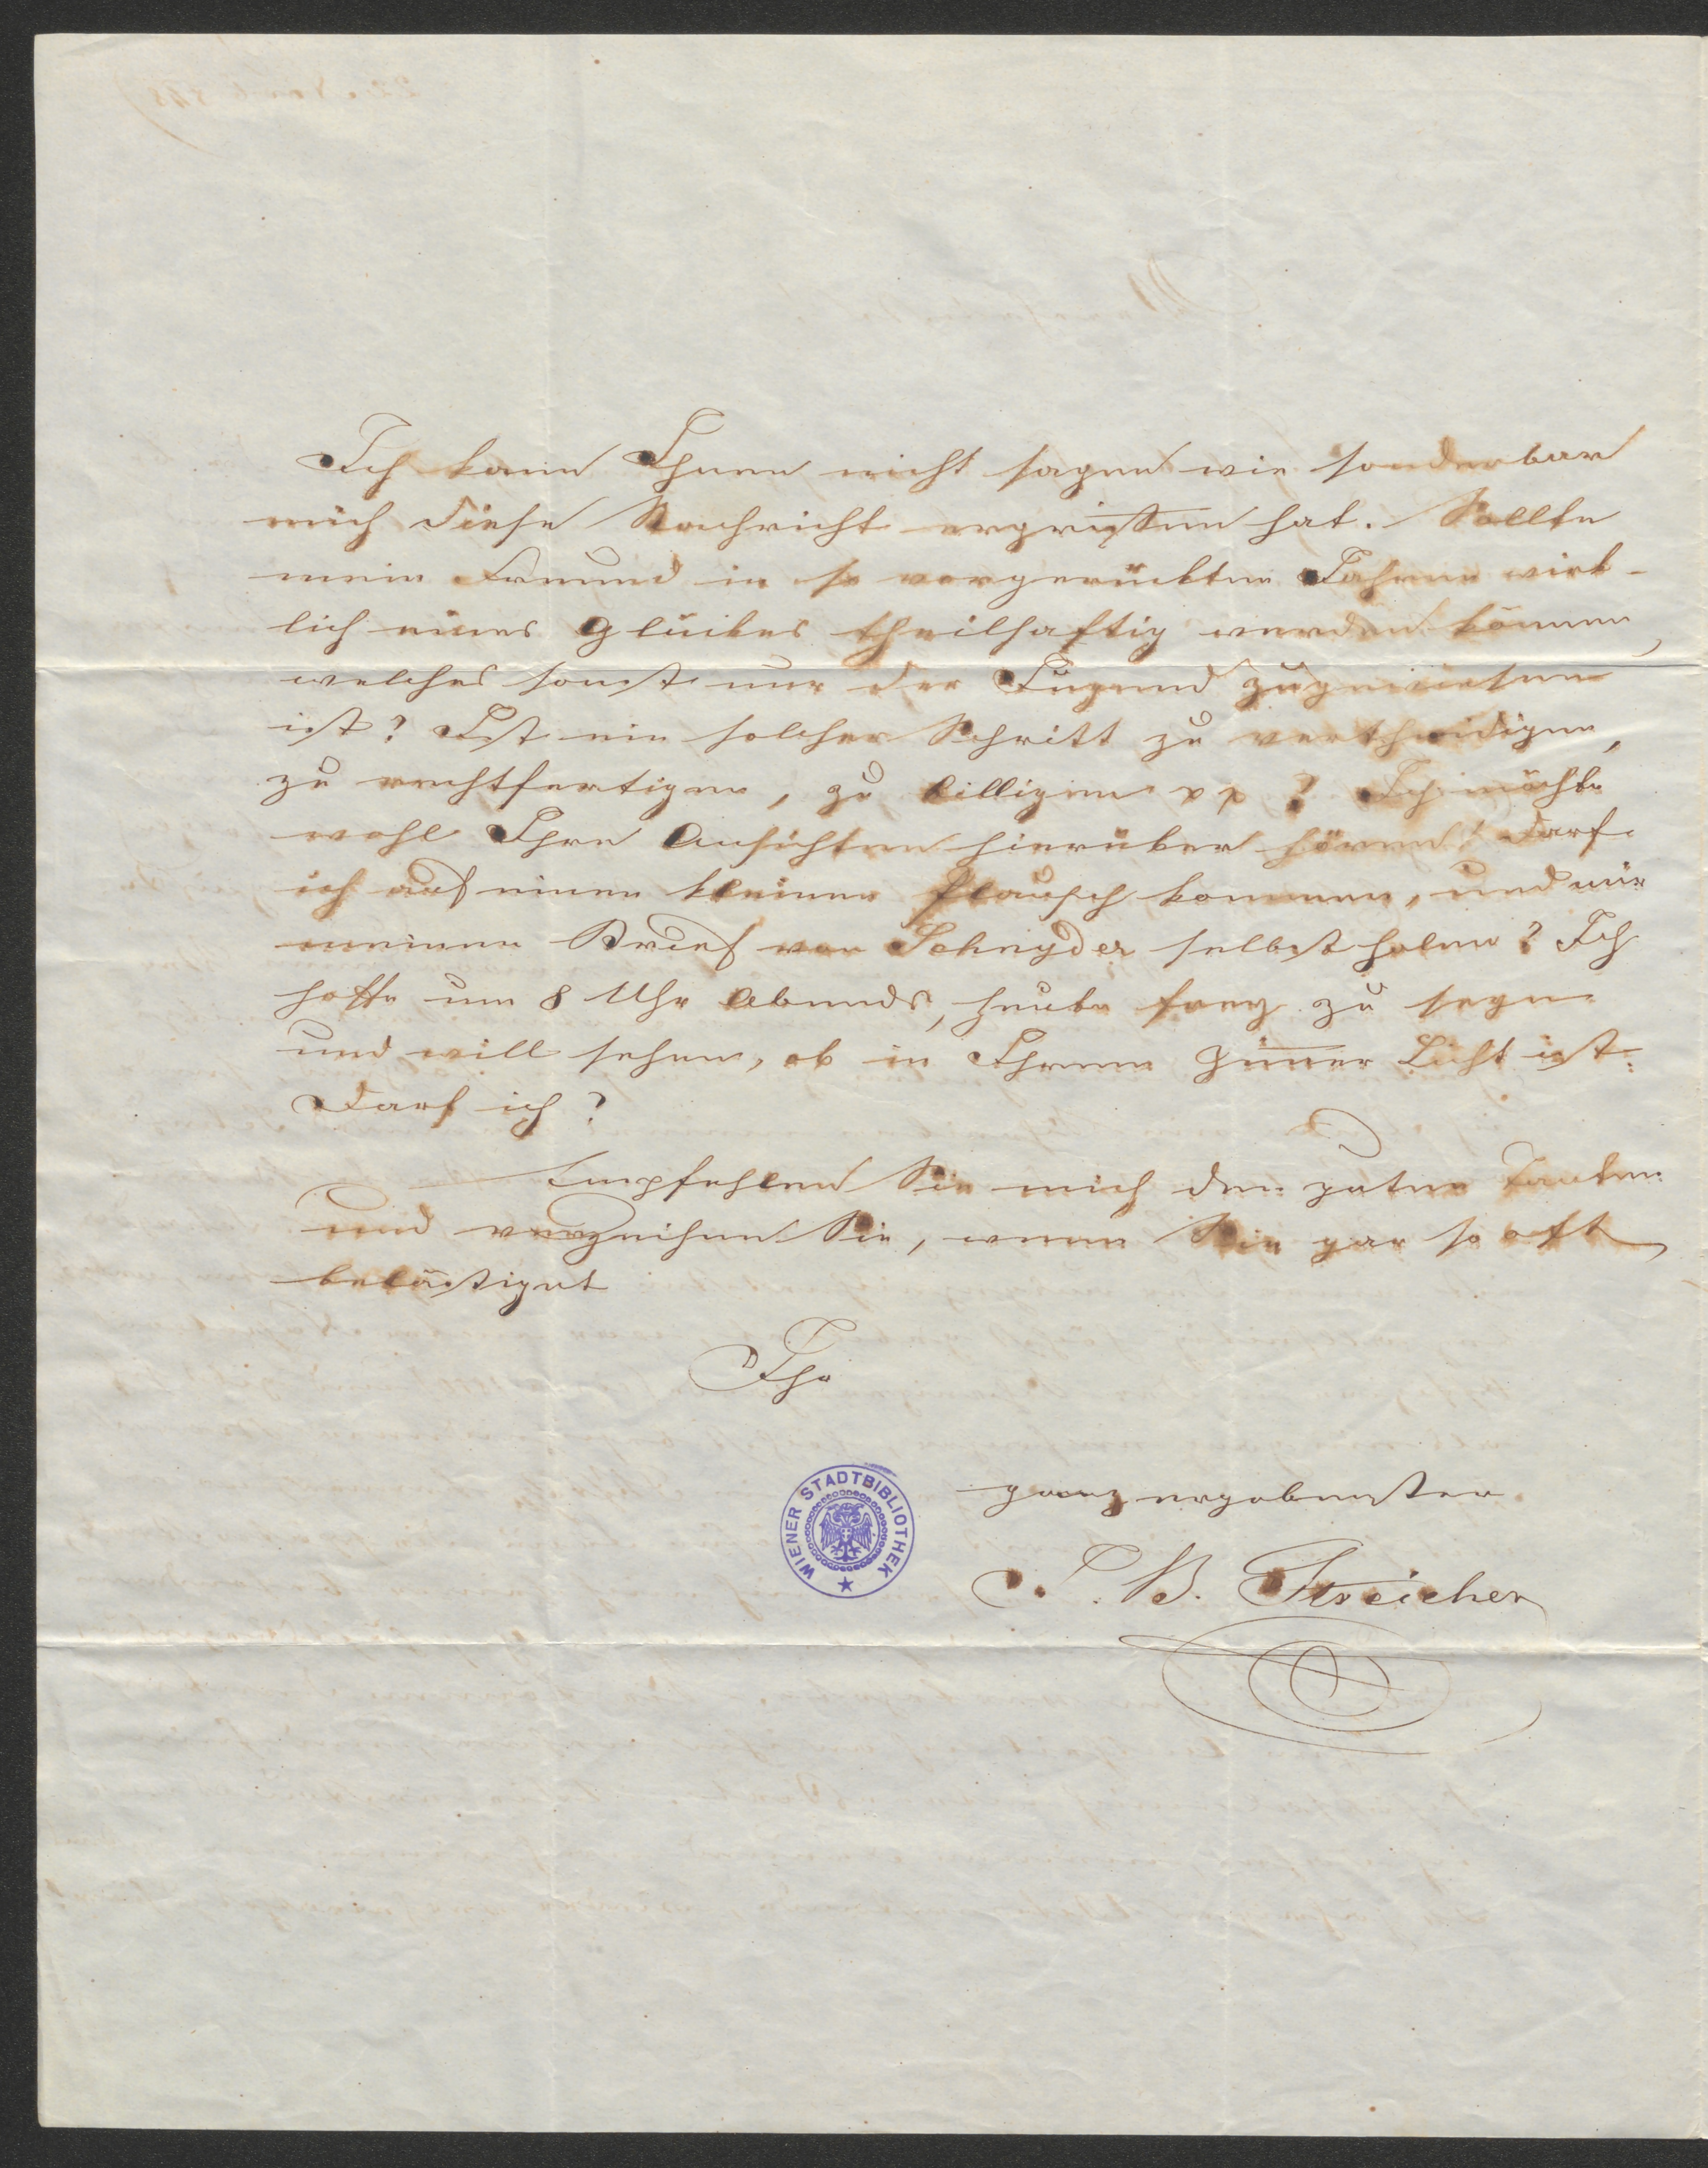 Ich kann Ihnen nicht sagen wie sonderbar
mich diese Nachricht ergriffen hat. Sollte
mein Freund in so vorgerückten Jahren wirk-
lich eines Glückes theilhaftig werden können,
welches sonst nur der Jugend zugewiesen
ist? Ist ein solcher Schritt zu vertheidigen,
zu rechtfertigen, zu billigen ? Ich möchte
wohl Ihre Ansichten hierüber hören! Darf
ich auf einen kleinen Plausch kommen, und mir
meinen Brief von Schnyder selbst holen? Ich
hoffe um 8 Uhr Abends, heute frey zu seyn
und will sehen, ob in Ihrem Zim̅er Licht ist.
Darf ich?
Empfehlen Sie mich den guten Tanten
und verzeihen Sie, wenn Sie gar so oft
belästiget
Ihr
ganz ergebenster
J. B. Streicher
WIENER STADTBIBLIOTHEK